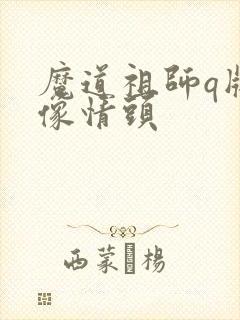 魔道祖師q版
像情頭
西蒙·楊